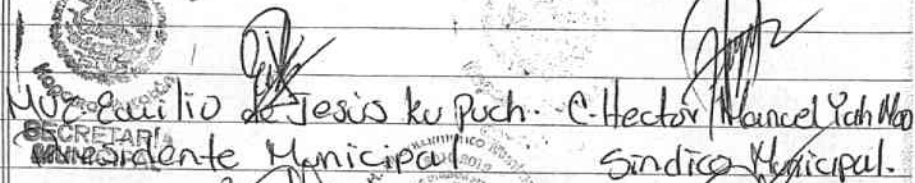 Emilio de Jesús Ku Puch. C. Hector Manuel
SECRETARÍA
Presidente Municipal Sindico Municipal.